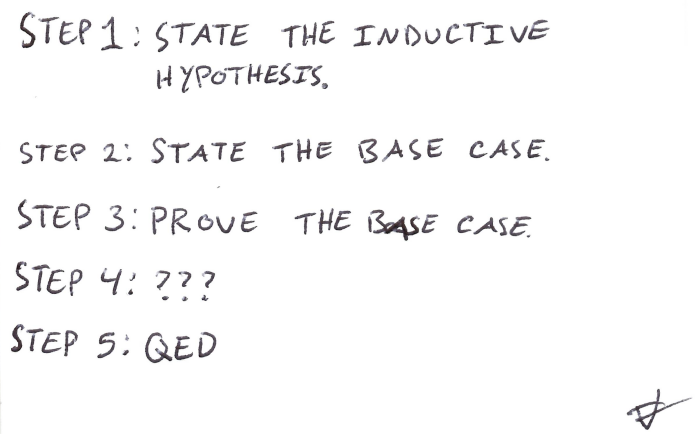 STEP 1: STATE THE INDUCTIVE
HYPOTHESIS.
STEP 2: STATE THE BASE CASE.
STEP 3: PROVE THE BASE CASE.
STEP 4: ???
STEP 5: QED